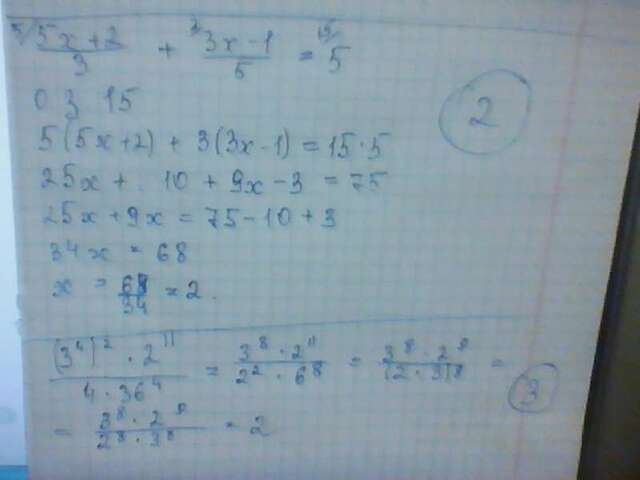 5/ (5x+2)/3 + 3/ (3x-1)/5 = 15/ 5
03 15
2
5(5x+2) + 3(3x-1) = 15·5
25x + . 10 + 9x - 3 = 75
25x + 9x = 75 - 10 + 3
34x = 68
x = 68/34 = 2.
((3⁴)² · 2¹¹)/(4 · 36⁴) = (3⁸ · 2¹¹)/(2² · 6⁸) = (3⁸ · 2⁹)/(2 · 3)⁸ =
3
= (3⁸ · 2⁹)/(2⁸ · 3⁸) = 2